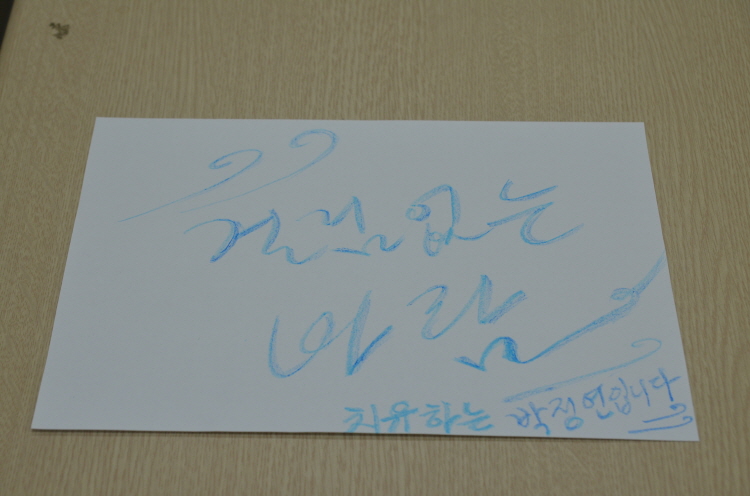 걸림없는
바람
치유하는 박정언입니다